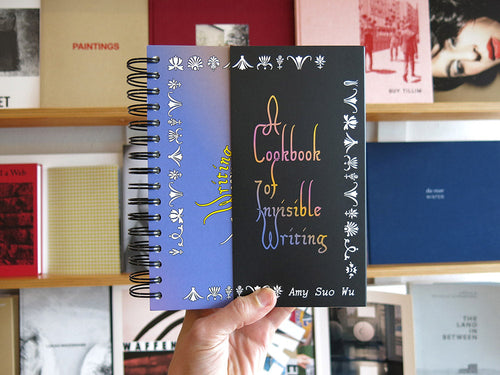 PAINTINGS
GUY TILLIM
A
Cookbook
of
Invisible
Writing
Writing
Amy Suo Wu
a Web
WATER
WAFFEN
THE
LAND
IN
BETWEEN